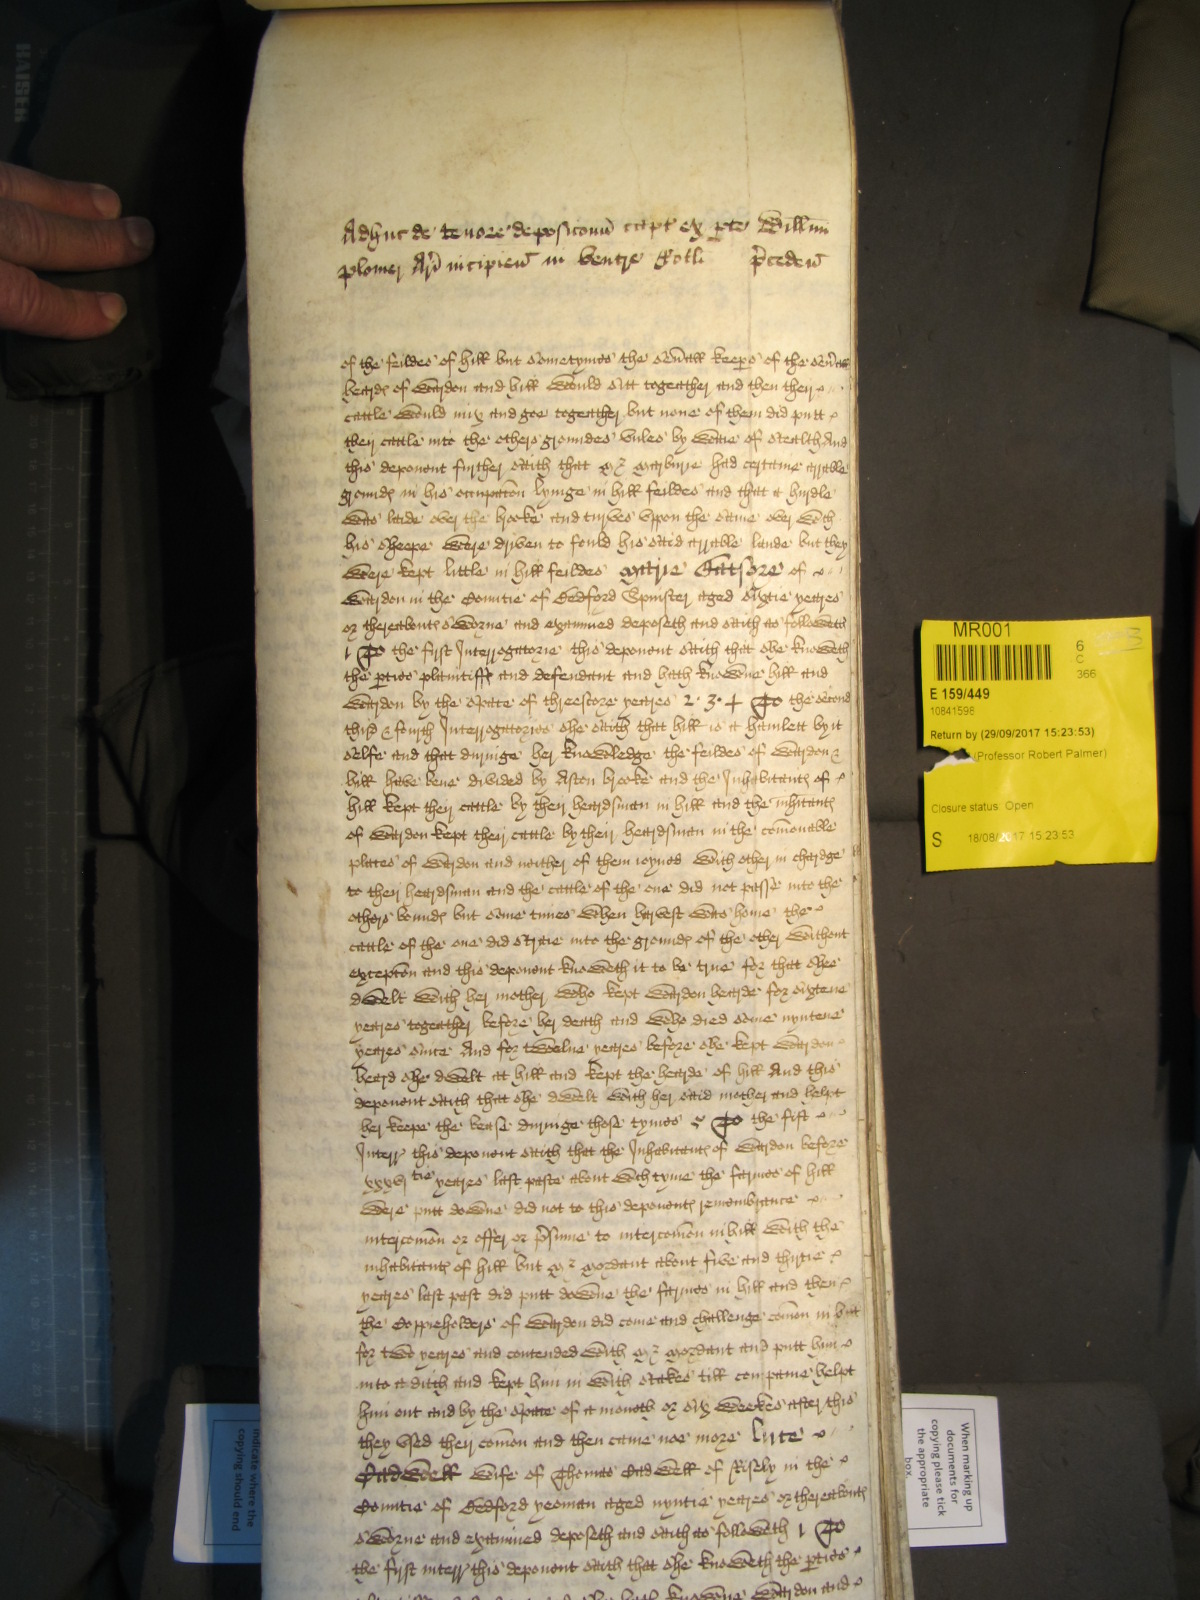 Adhuc de tenore deposicionu capt ex pte Willmi
Plomer Ari incipien in ventre Rotli pceden
of the feildes of hill but sometymes the seuall keeps of the seuall
heards of Wardon and hill would sitt togeather and then their
cattle would mix and goe togeather but none of them did putt
their cattle into the others groundes vnles by waie of stealth And
this deponent further saith that Mr Marburie had certaine arrable
grounds in his occupacon lyinge in hill feildes and that a hurdle
was laide over the brooke and turves vppon the same over wch
his sheepe were driven to fould his said arrable lande but they
were kept little in hill feildes Marie Catsore of
Wardon in the Countie of Bedford Spinster aged sixtie yeares
or thereabouts sworne and examined deposeth and saith as followeth
1 To the first Interrogatorie this deponent saith that she knoweth
the pties plaintiffs and defendant and hath knowne hill and
Wardon by the space of threescore yeares 2. 3. 4 To the second
third & fourth Interrogatories she saith that hill is a hamlett by it
selfe and that duringe her knowledge the feildes of Wardon &
hill have bene divided by Aston brooke and the Inhabitants of
hill kept their cattle by their heardsman in hill and the inhitants
of Wardon kept their cattle by their heardsman in the comonable
places of Wardon and neither of them ioyned with other in chardge
to their heardsman and the cattle of the one did not passe into the
others bounds but some times when harvest was home the
cattle of the one did straie into the grounds of the other without
excepcon and this deponent knoweth it to be true for that shee
dwelt with her mother who kept Wardon hearde for sixtene
yeares togeather before her death and who died some nyntene
yeares since And for twelue yeares before she kept Wardon
heard she dwelt at hill and kept the hearde of hill And this
deponent saith that she dwelt with her said mother and helpt
her keepe the beasts duringe those tymes 5 To the fift
Interr this deponent saith that the Inhabitants of Wardon before
xxxvj tie yeares last paste about wch tyme the farmes of hill
were putt downe did not to this deponents remembrance
intercomon or offer or psume to intercomon in hill with the
inhabitants of hill but Mr Mordant about five and thirtie
yeares last past did putt downe the farmes in hill and then
the Coppieholders of Wardon did come and challenge comon in hill
for two yeares and contended with Mr Mordant and putt him
into a ditch and kept him in with stakes till companie helpt
him out and by the space of a moneth or six weekes after this
they vsed their comon and then came noe more Luce
Cadwell wife of Thomas Cadwell of Risely in the
Countie of Bedford yeoman aged nyntie yeares or thereabouts
sworne and examined deposeth and saith as followeth 1 To
the first interr this deponent saith that she knoweth the pties
hath knowne Wardon and
MR001
6
C
366
E 159/449
10841598
Return by (29/09/2017 15:23:53)
(Professor Robert Palmer)
Closure status Open
S 18/08/2017 15:23:53
When marking up
documents for
copying please tick
the appropriate
box.
indicate where the
copying should end
HAISER